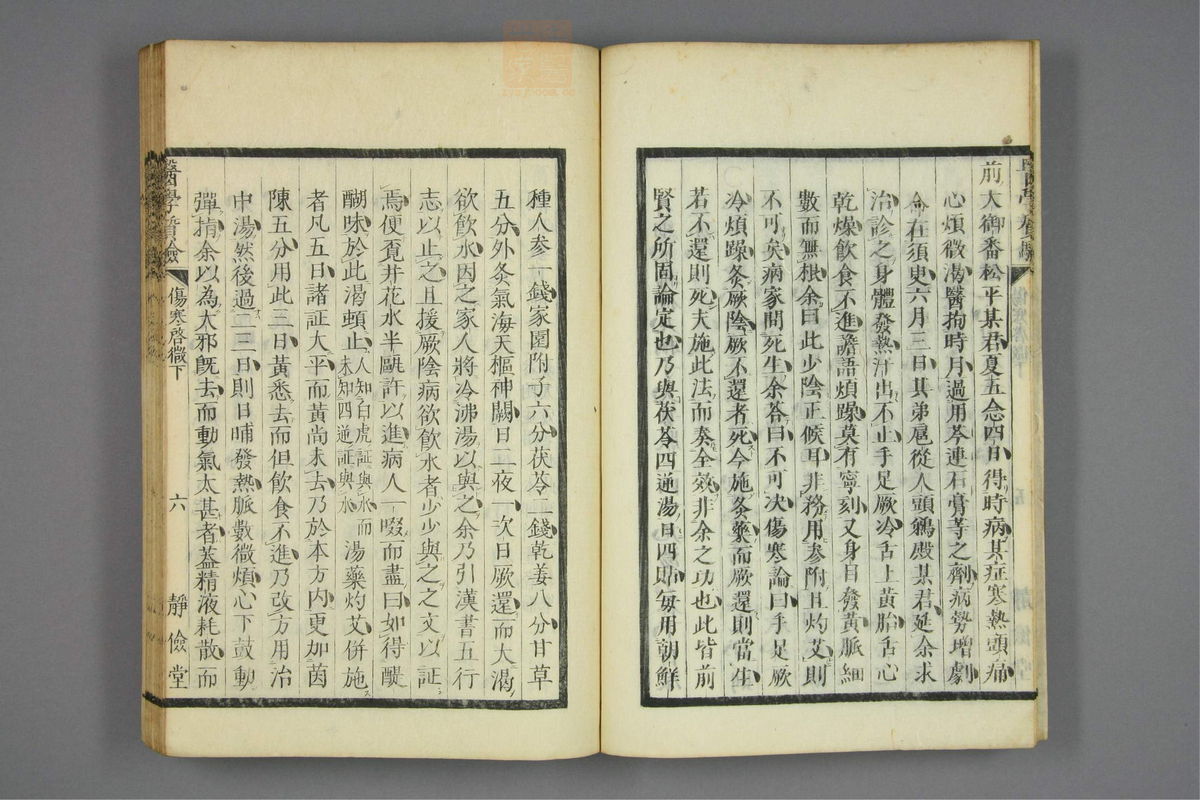 前大御番松平某君夏五念四日得時病其症寒熱頭痛
心煩微渴醫拘時月過用芩連石膏等之劑病勢增劇
命在須臾六月三日其弟扈從人頭鵜殿某君延余求
治診之身體發熱汗出不止手足厥冷舌上黃胎舌心
乾燥飲食不進譫語煩躁莫有寧刻又身目發黃脈細
數而無根余曰此少陰正候耳非務用參附且灼艾則
不可矣病家問死生余荅曰不可決傷寒論曰手足厥
冷煩躁灸厥陰厥不還者死今施灸藥而厥還則當生
若不還則死夫施此法而奏全效非余之功也此皆前
賢之所固論定也乃與茯苓四逆湯日四貼每用朝鮮
種人參一錢家園附子六分茯苓二錢乾姜八分甘草
五分外灸氣海天樞神闕日二夜一次日厥還而大渴
欲飲水因之家人將冷沸湯以與之余乃引漢書五行
志以止之且援厥陰病欲飲水者少少與之之文以証
焉便覔井花水半甌許以進病人一啜而盡曰如得醍
醐味於此渴頓止人知白虎証與水而未知四逆証與水湯藥灼艾併施
者凡五日諸証大平而黃尚未去乃於本方內更加茵
陳五分用此三日黃悉去而但飲食不進乃改方用治
中湯然後過二三日則日晡發熱脈數微煩心下鼓動
彈指余以為大邪旣去而動氣太甚者蓋精液耗散而
傷寒啓微下
六
靜儉堂